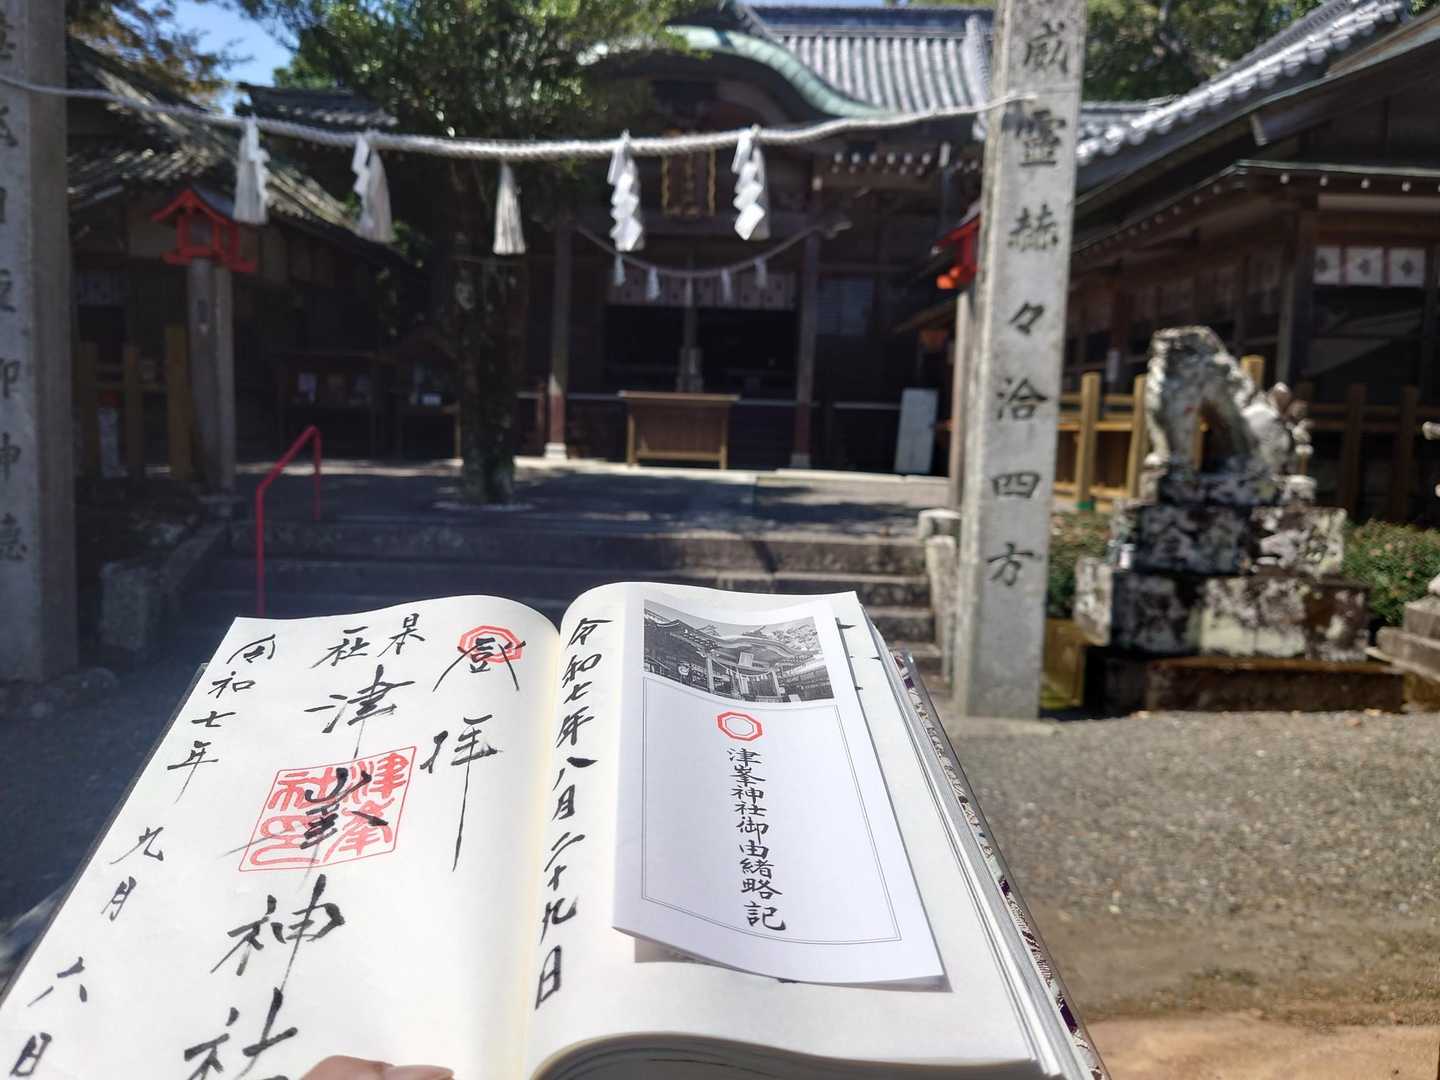 威靈赫々洽四方
登拝
日本一社
津峯神社
津峯神社印
令和七年九月六日
令和七年八月二十九日
津峯神社御由緒略記